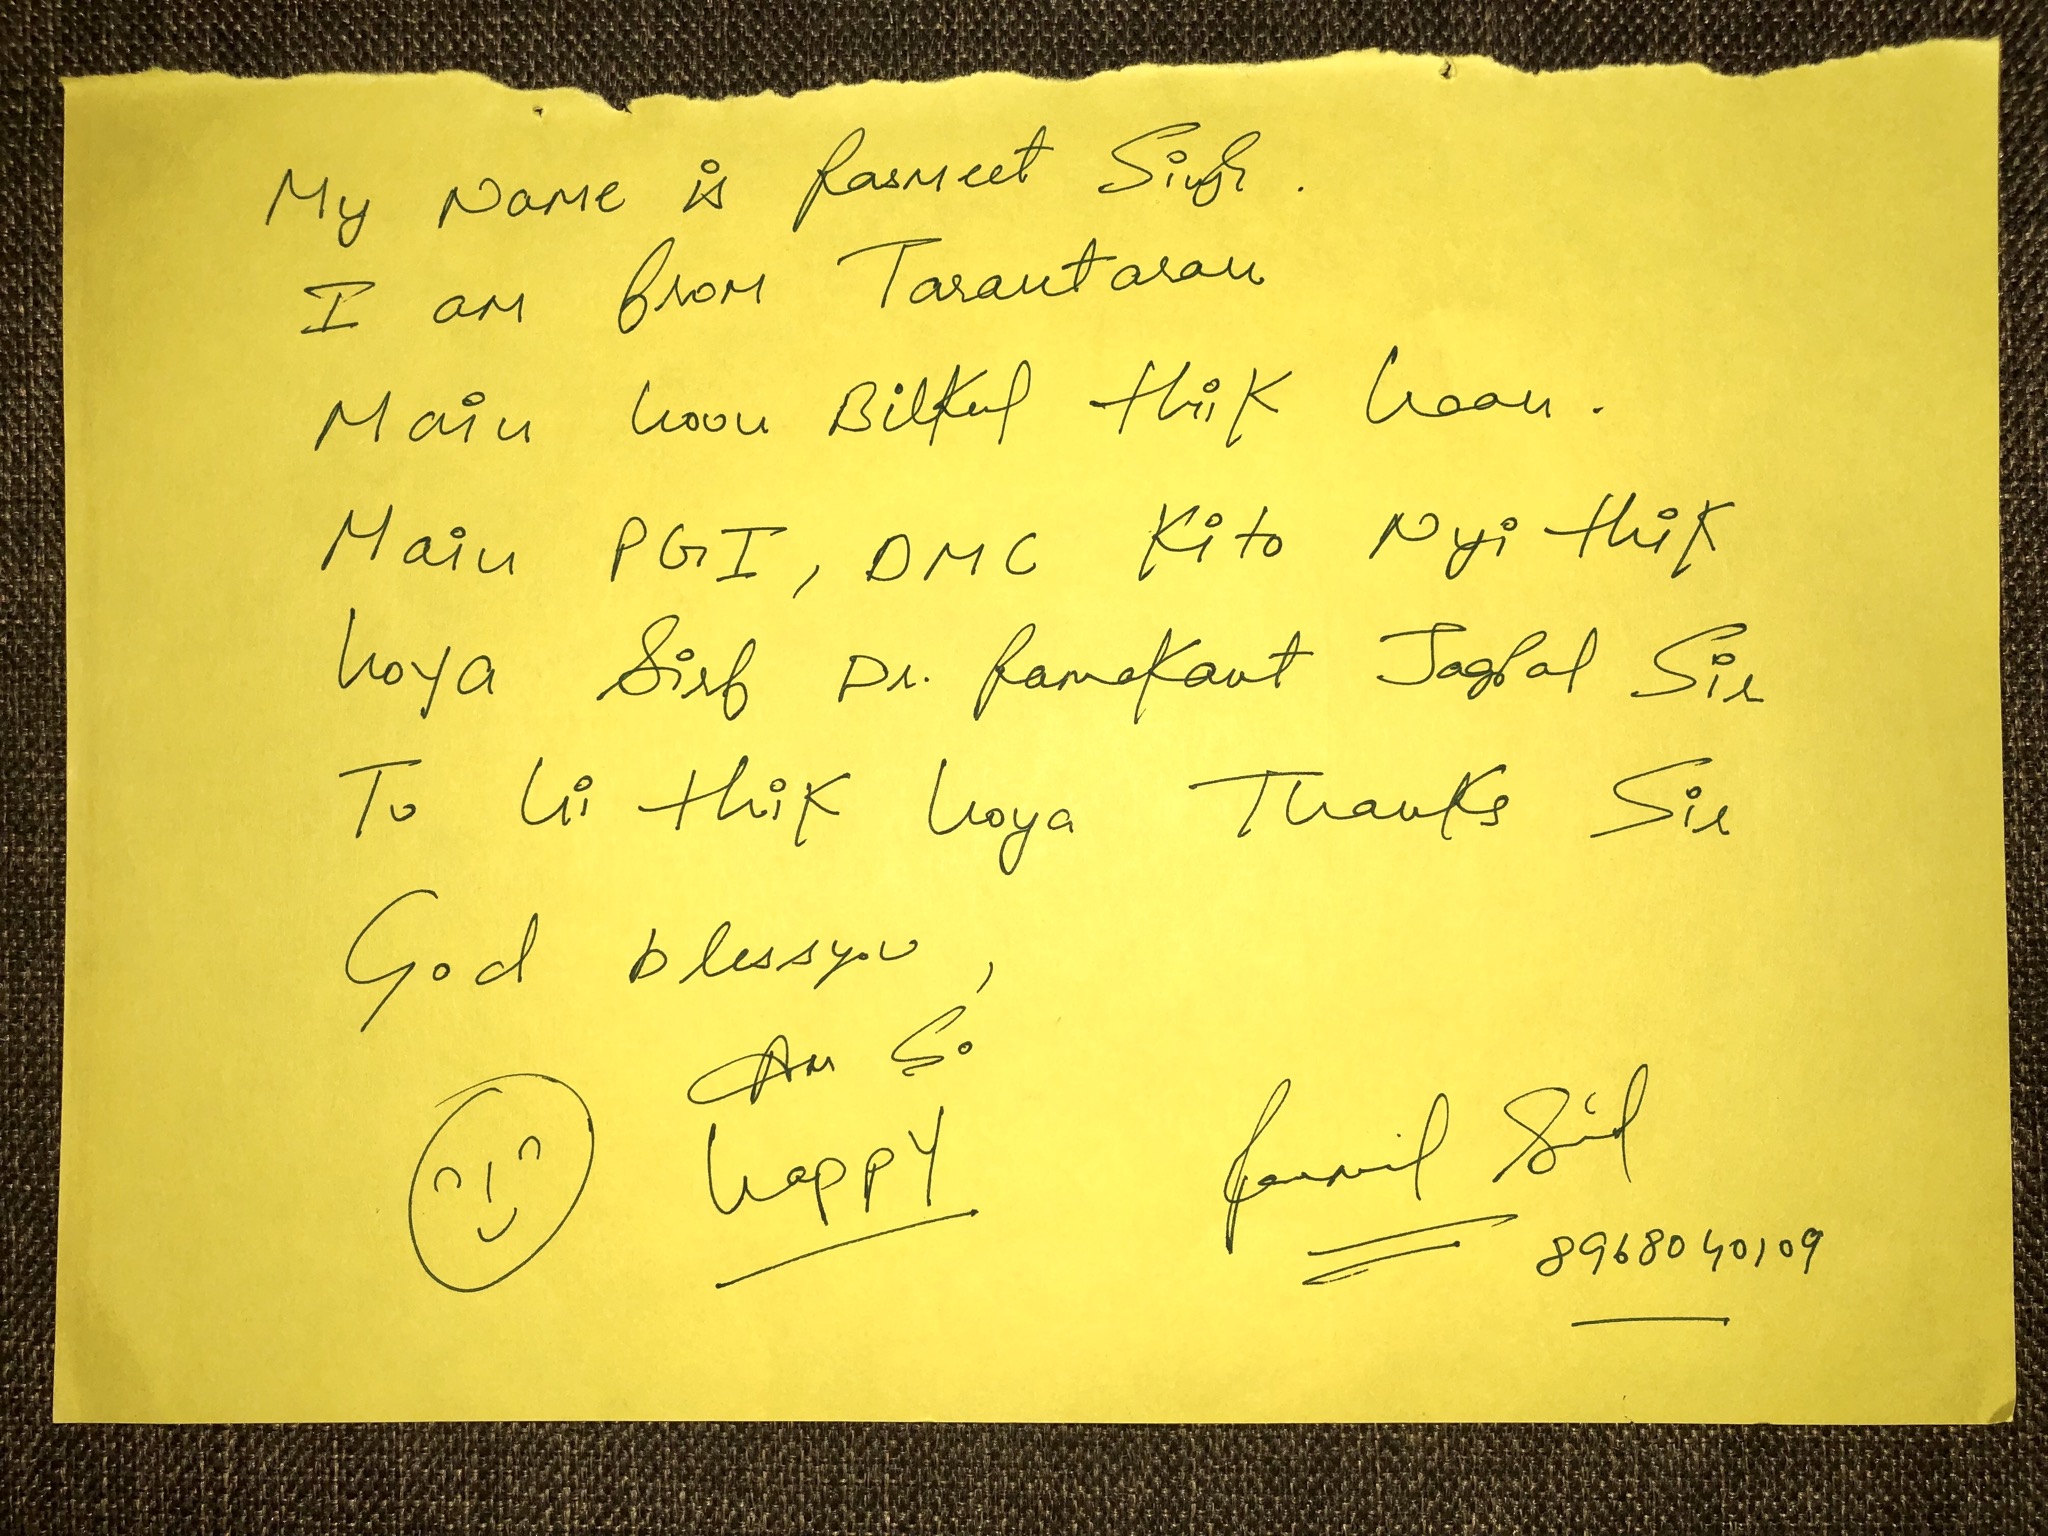 My Name is Rasmeet Singh.
I am from Tarantaran
Main hoon Bilkul thik haan.
Main PGI, DMC Kito Nyi thik
hoya Sirf Dr. Ramakant Jagpal Sir
To hi thik hoya Thanks Sir
God blessyou,
Am So
happy
8968040109